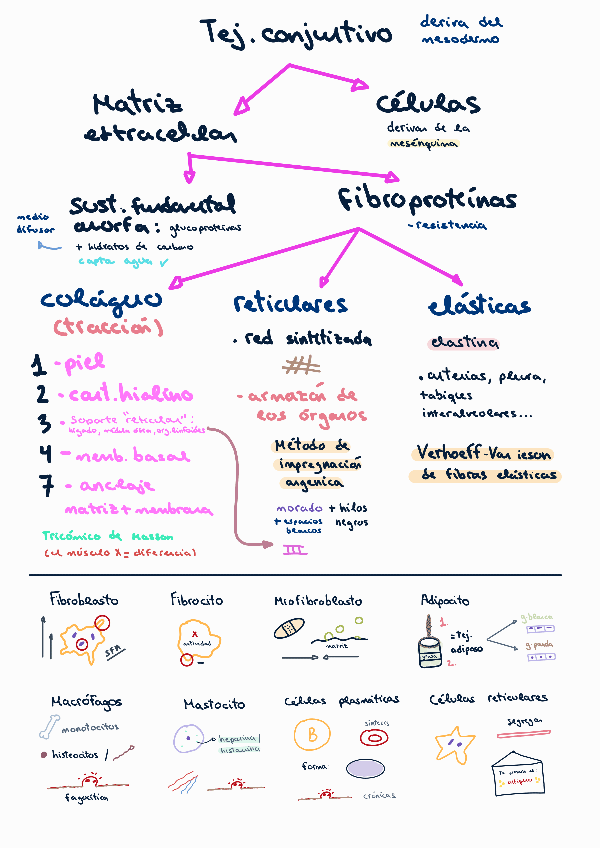 Tej. conjuntivo
deriva del
mesodermo
Matriz
extracelular
células
derivan de la
mesénquima
Sust. fundamental
amorfa: glucoproteínas
+ hidratos de carbono
capta agua ✓
medio
difusor
Fibroproteínas
- resistencia
colágeno
(tracción)
1 - piel
2 - cart. hialino
3 - Soporte "reticular":
hígado, médula ósea, org. linfoides
4 - memb. basal
7 - anclaje
matriz + membrana
Tricómico de Masson
(el músculo X = diferencia)
reticulares
. red sintetizada
- armazón de
los órganos
Método de
impregnación
argenica
morado + hilos
+ espacios negros
blancos
III
elásticas
elastina
. arterias, pleura,
tabiques
interalveolares...
Verhoeff-Van ieson
de fibras elásticas
Fibroblasto
SFA
Fibrocito
X
actividad
Miofibroblasto
matriz
Adipocito
1.
= Tej.
adiposo
2.
g. blanca
g. parda
Macrófagos
monocitos
histiocitos /
fagocítica
Mastocito
heparina /
histamina
Células plasmáticas
B
síntesis
forma
crónicas
Células reticulares
segregan